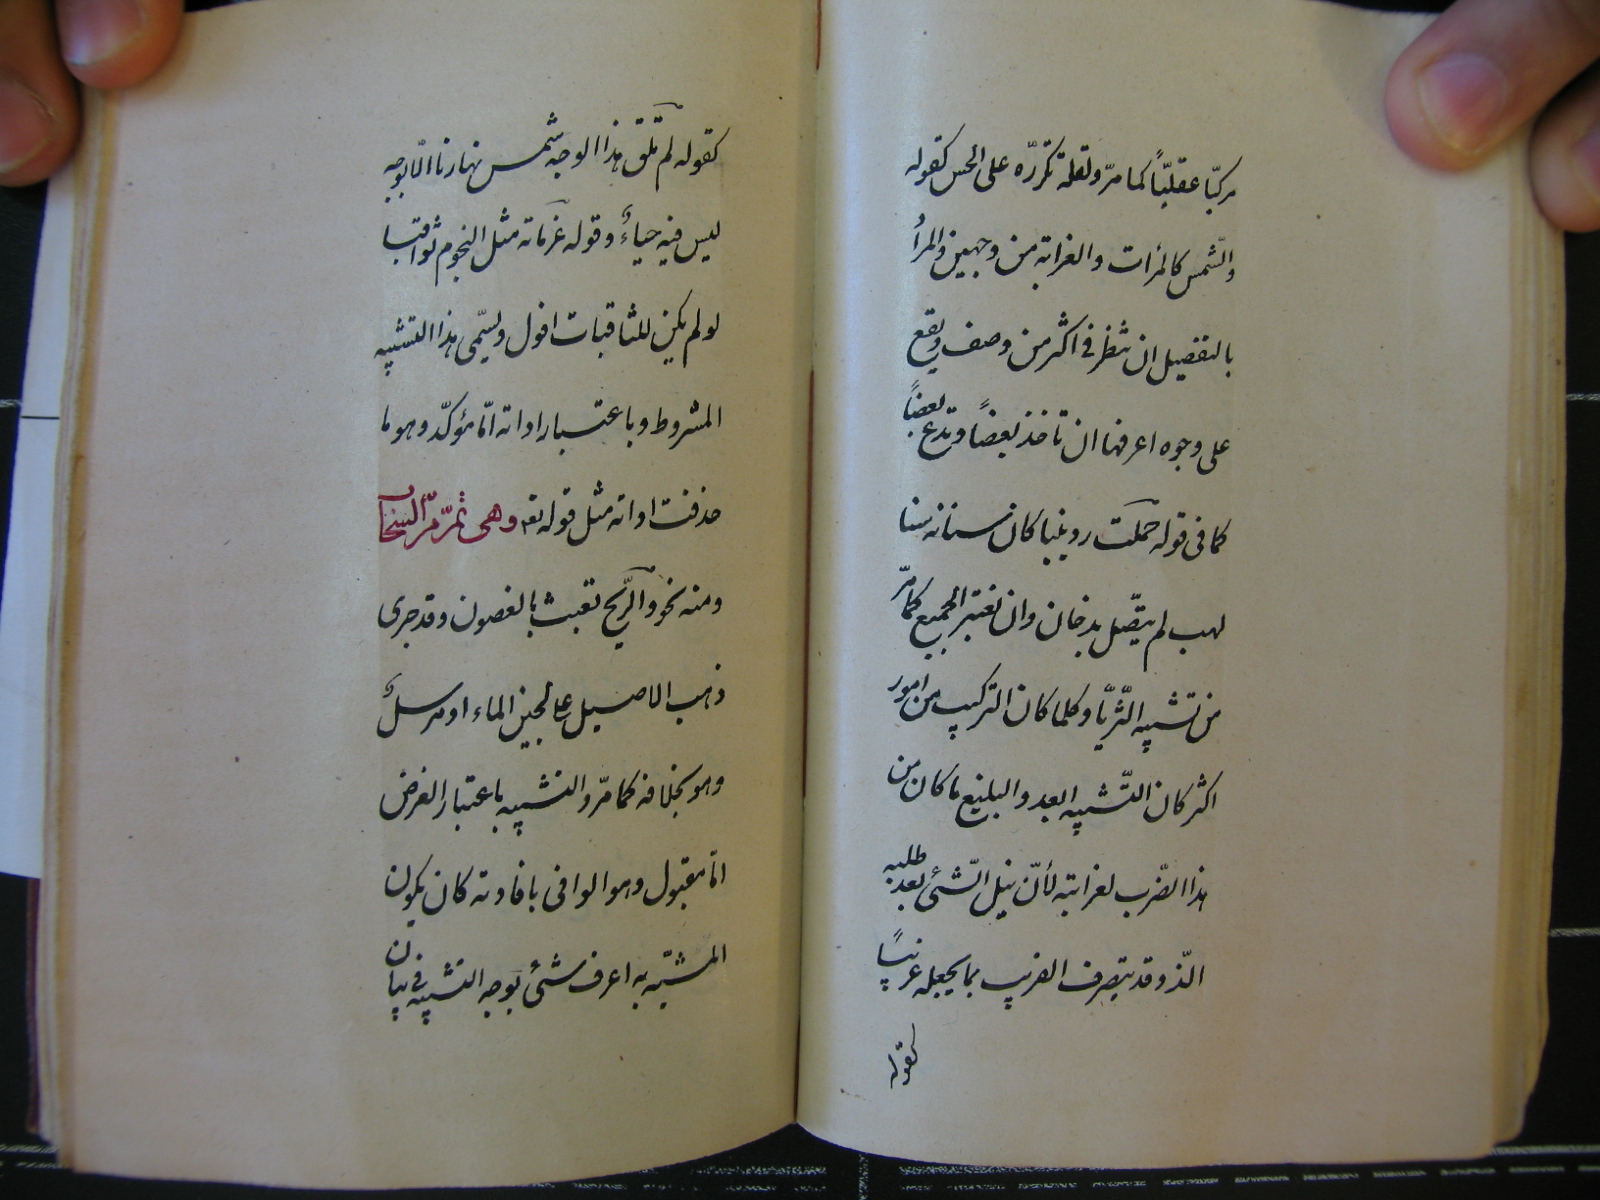 مركبّا عقليّاً كما مرّ ولقلة تكررّه على الحس كقوله
والشّمس كالمرٰات والغرابة من وجهين والمراُ
بالتفصيل ان ينظر في اكثر من وصف ويقع
على وجوه اعرفها ان تاخذ بعضاً وتدع بعضاً
كما فى قوله حملت ردينيا كان سنانه سنا
لهب لم يتّصل بدخان وان تعتبر الجميع كما مرّ
من تشبيه الثّريّا وكلما كان التركيب من امور
اكثر كان التّشبيه ابعد والبليغ ما كان من
هذا الضّرب لغرابته لأنّ نيل الشّئ بعد طلبه
الذّ وقد يتصرف القريب بما يجعله غريباً
كقوله
كقوله لم تلق هذا الوجه شمس نهارنا الّا بوجه
ليس فيه حياءُ وقوله عزماته مثل النجوم ثواقبا
لو لم يكن للثاقبات افول ويسّمى هذا التشبيه
المشروط وباعتبار اداته امّا مؤكدّ وهو ما
حذفت اداته مثل قوله تع وهى تمرّ مرّ السّحاب
ومنه نحو والرّيح تعبث بالغصون وقد جرى
ذهب الاصيل على لجين الماء او مرسلُ
وهو بخلافه كما مرّ والتشبيه باعتبار الغرض
امّا مقبول وهو الوافى بافادته كان يكون
المشبّه به اعرف شئ بوجه التشبيه في بيان